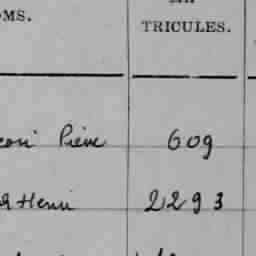 OMS.
TRICULES.
Pierre 609
Henri 2293